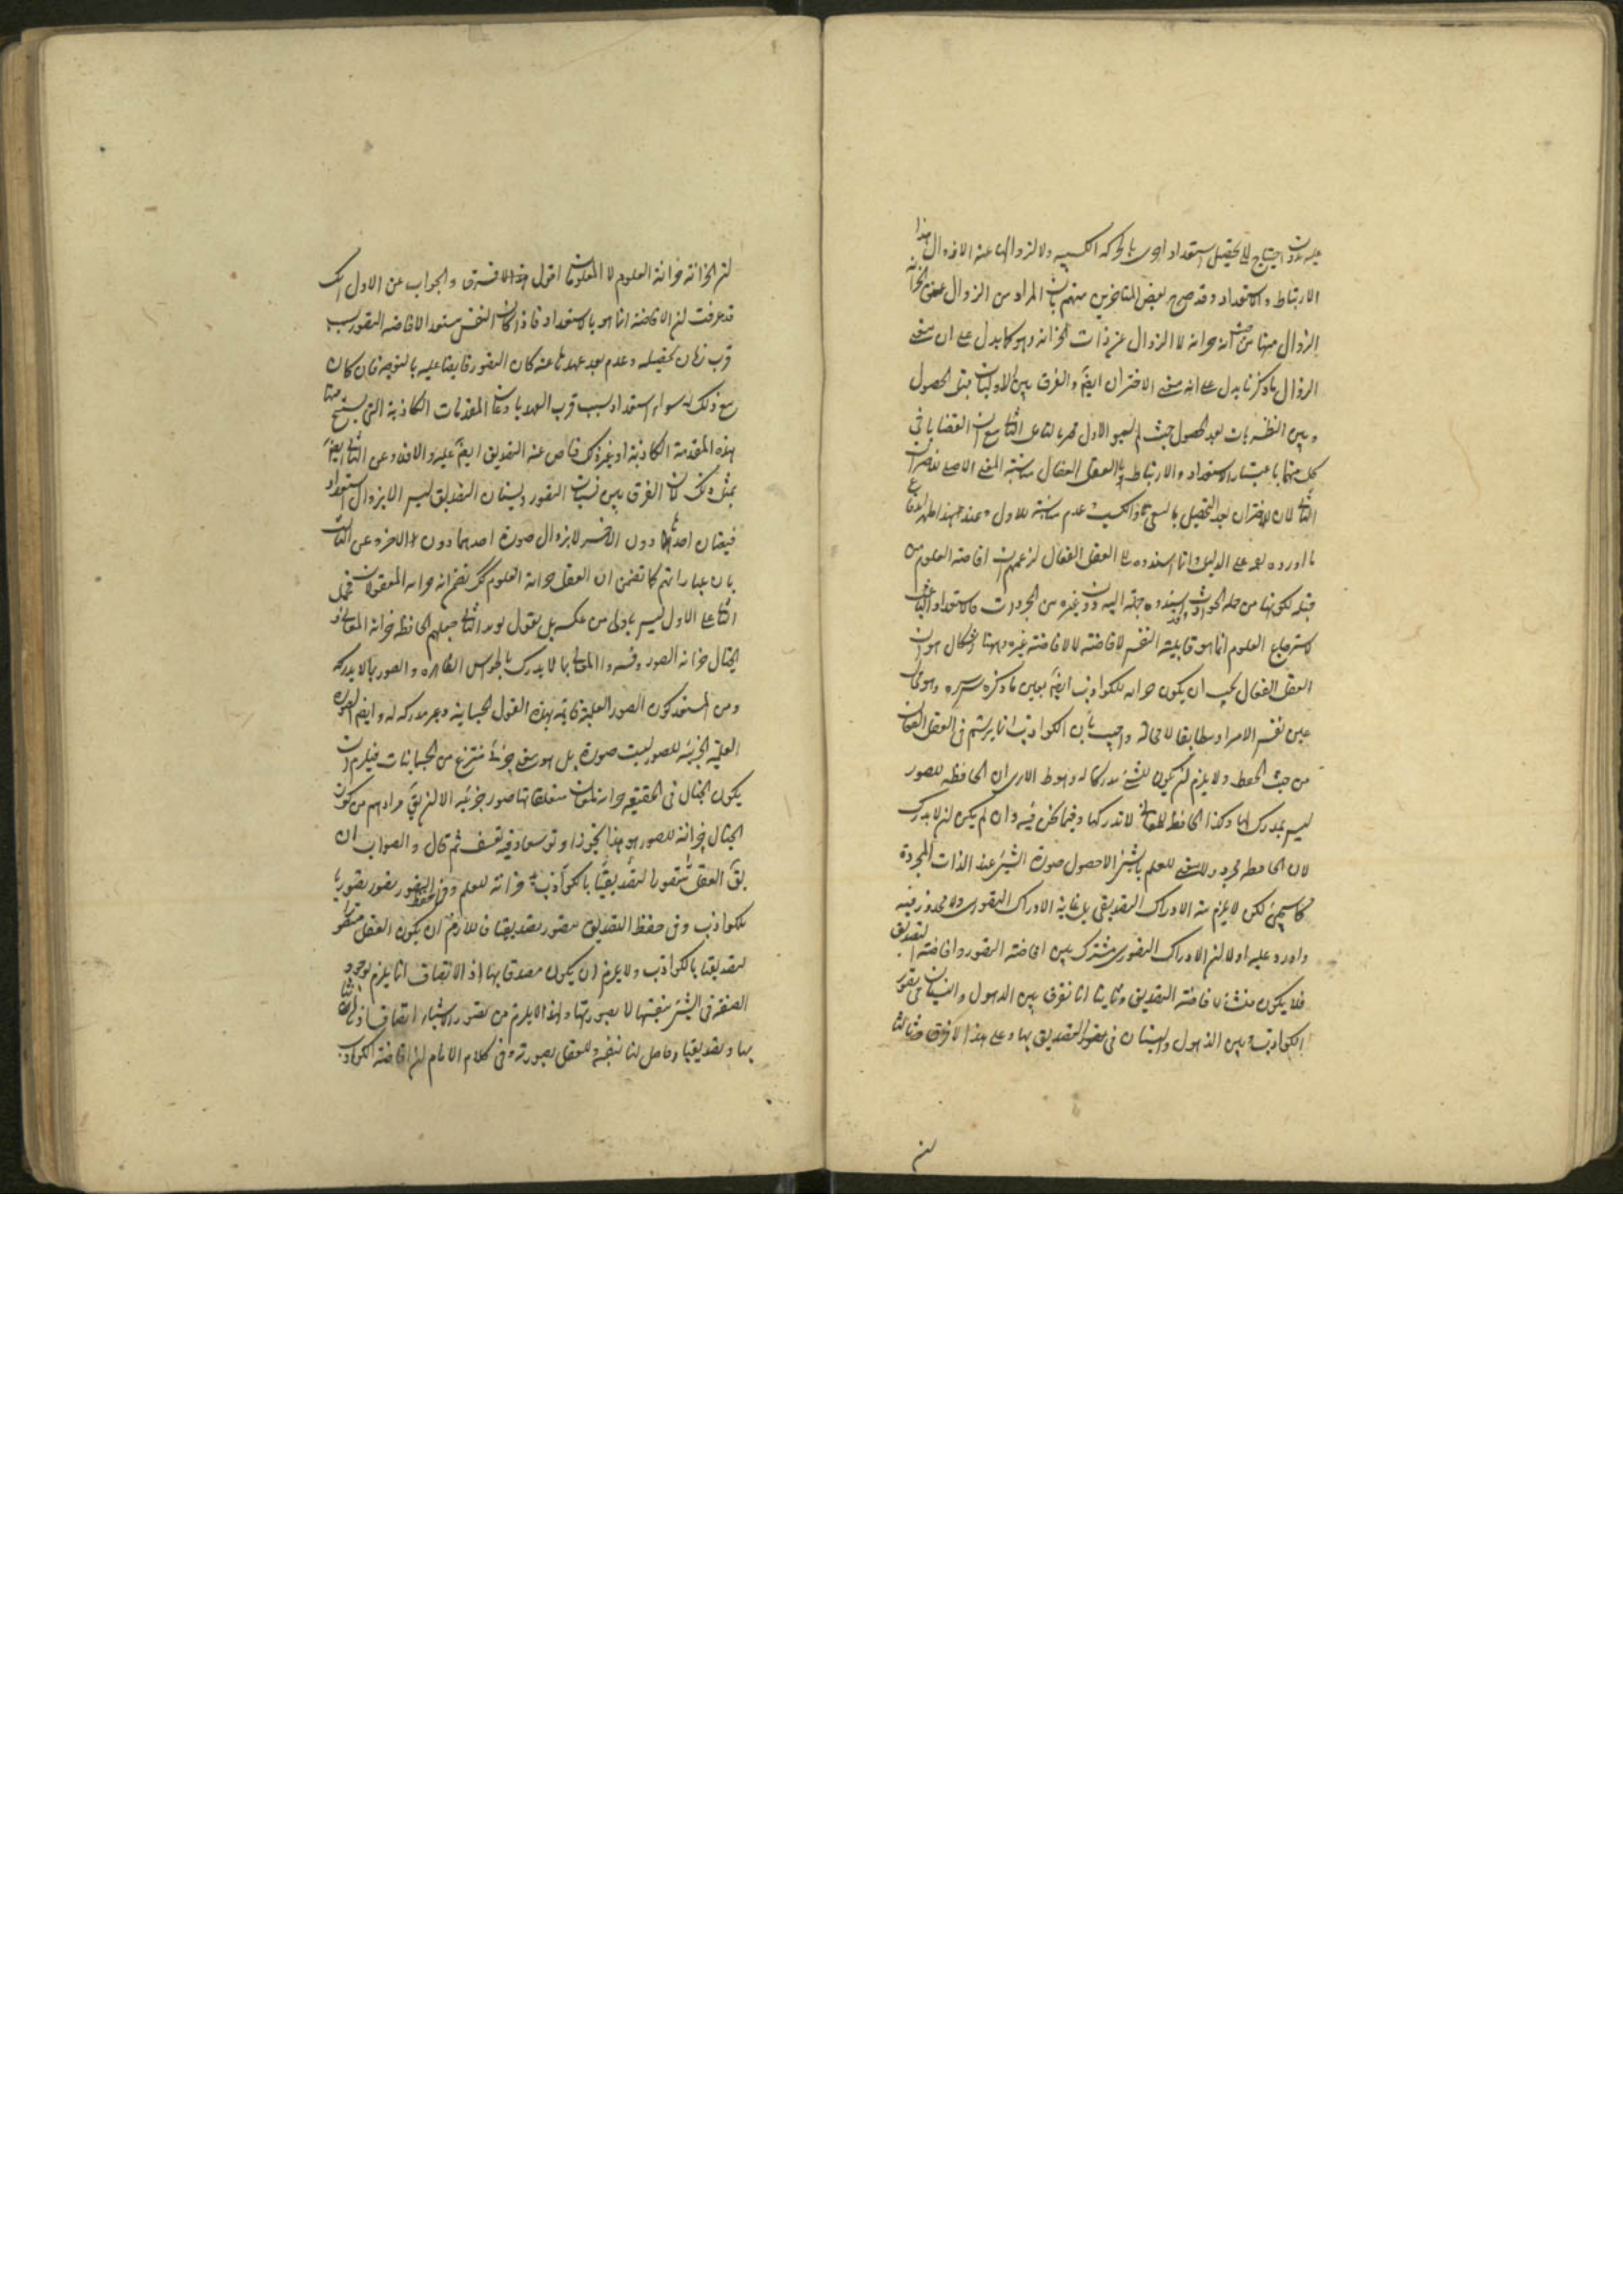 عليه بدون احتياج الى تحصيل استعداد اخرى بالحركة الكسبية ولا لزوالها عنه الا زوال هذا
الارتباط والاستعداد وقد صرح بعض المتأخرين منهم بان المراد من الزوال عن الخزانة
الزوال منها من حيث انه خزانة لا الزوال عن ذات الخزانة وهو كما يدل على ان معنى
الزوال ما ذكرنا يدل على انه معنى الاختزان ايضا والفرق بين الاوليات قبل الحصول
وبين النظريات بعد الحصول حيث لم الاول دون الثانى مع ان القضايا فى
كل منهما باعتبار الاستعداد والارتباط بالعقل الفعال مناسبة المعنى الاصلى للاختزان
الثانى لان الاختزان بعد التحصيل بالسعى والكسب عدم مناسبة للاول وعند هذا ظهر اندفاع
ما اورده على الدليل وانما اسندوه الى العقل الفعال لزعمهم ان افاضة العلوم من
قبله لكونها من جملة الحوادث جملة اليه دون غيره من المجردات فالاستعداد الباعث
لاسترجاع العلوم انما هو قابلية النفس لافاضته لا لافاضة غيره وههنا اشكال هو ان
العقل الفعال يجب ان يكون خزانة للكواذب ايضا بعين ما ذكره وهو
عين نفس الامر او مطابقا لا محالة واجيب بان الكواذب انما يرتسم فى العقل الفعال
من حيث الحفظ ولا يلزم لن يكون للشئ مدركا له الا يرى ان الحافظة للصور
ليس بمدرك لها وكذا الحافظ للمعانى لا تدركها وفيما نحن فيه وان لم يكن لن لا يدرك
لان الحافظ مجرد ولا معنى للعلم بالشئ الا حصول صورة الشئ عند الذات المجردة
كما سيجئ لكن لا يلزم منه الادراك التصديقى بل غايته الادراك التصورى ولا محذور فيه
واورد عليه اولا لن الادراك التصورى مشترك بين افاضة التصور وافاضة التصديق
فلا يكون منشأ لافاضة التصديق وثانيا انا نفرق بين الذهول والنسيان فى تصور
الكواذب وبين الذهول والنسيان فى التصديق بها وعلى هذا لا فرق وثالثا
لن
لن الخزانة خزانة العلوم لا المعلومات اقول هذا الافتراق والجواب عن الاول انك
قد عرفت لن الافاضة انما هو بالاستعداد فاذا كان النفس مستعدا لافاضة التصور بسبب
قرب زمان تحصيله وعدم بعد عهدها عنه كان التصور فايضا عليه بالتوجه فان كان
مع ذلك له سواء استعداد بسبب قرب العهد باذعان المقدمات الكاذبة التى ينتج منها
هذه المقدمة الكاذبة او غير ذلك فاض عنه التصديق ايضا عليه والا فلا وعن الثانى ايضا
بمثل ذلك فان الفرق بين نسيان التصور ونسيان التصديق ليس الا بزوال استعداد
فيضان احدهما دون الاخر لا بزوال صورة احدهما دون الاخر وعن الثالث
بان عباراتهم كما تضمن ان العقل خزانة العلوم كك تضمن انه خزانة المعقولات فحمل
الثانى على الاول ليس باولى من عكسه بل نقول يؤيد الثانى جعلهم الحافظة خزانة المعانى و
الخيال خزانة الصور وفسروا المعانى بما لا يدرك بالحواس الظاهرة والصور بما لا يدركه
ومن المستبعد كون الصور العلمية قائمة بهذه القوى الجسمانية وغير مدركة له وايضا الصورة
العلمية الجزئية للصور ليست صورة بل هو معنى جزئى منتزع من الجسمانيات فيلزم ان
يكون الخيال فى الحقيقة خزانة لمعان متعلقاتها صور جزئية الا لن يق مرادهم من كون
الخيال خزانة للصور هو هذا تجوزا وتوسعا وفيه تعسف ثم قال والصواب ان
يق العقل متصورا لتصديقنا بالكواذب خزانة للعلم وفى حفظ التصور يتصور تصورنا
للكواذب وفى حفظ التصديق يتصور تصديقنا فاللازم ان يكون العقل متصورا
لتصديقنا بالكواذب ولا يلزم ان يكون مصدقا بها اذ الاتصاف انما يلزم بوجود
الصفة فى الشئ بنفسها لا بصورتها ولهذا لا يلزم من تصور الاشياء اتصاف اذهاننا
بها وتصديقنا حاصل لنا بنفسه وللعقل بصورته وفى كلام الامام لن افاضة الكواذب